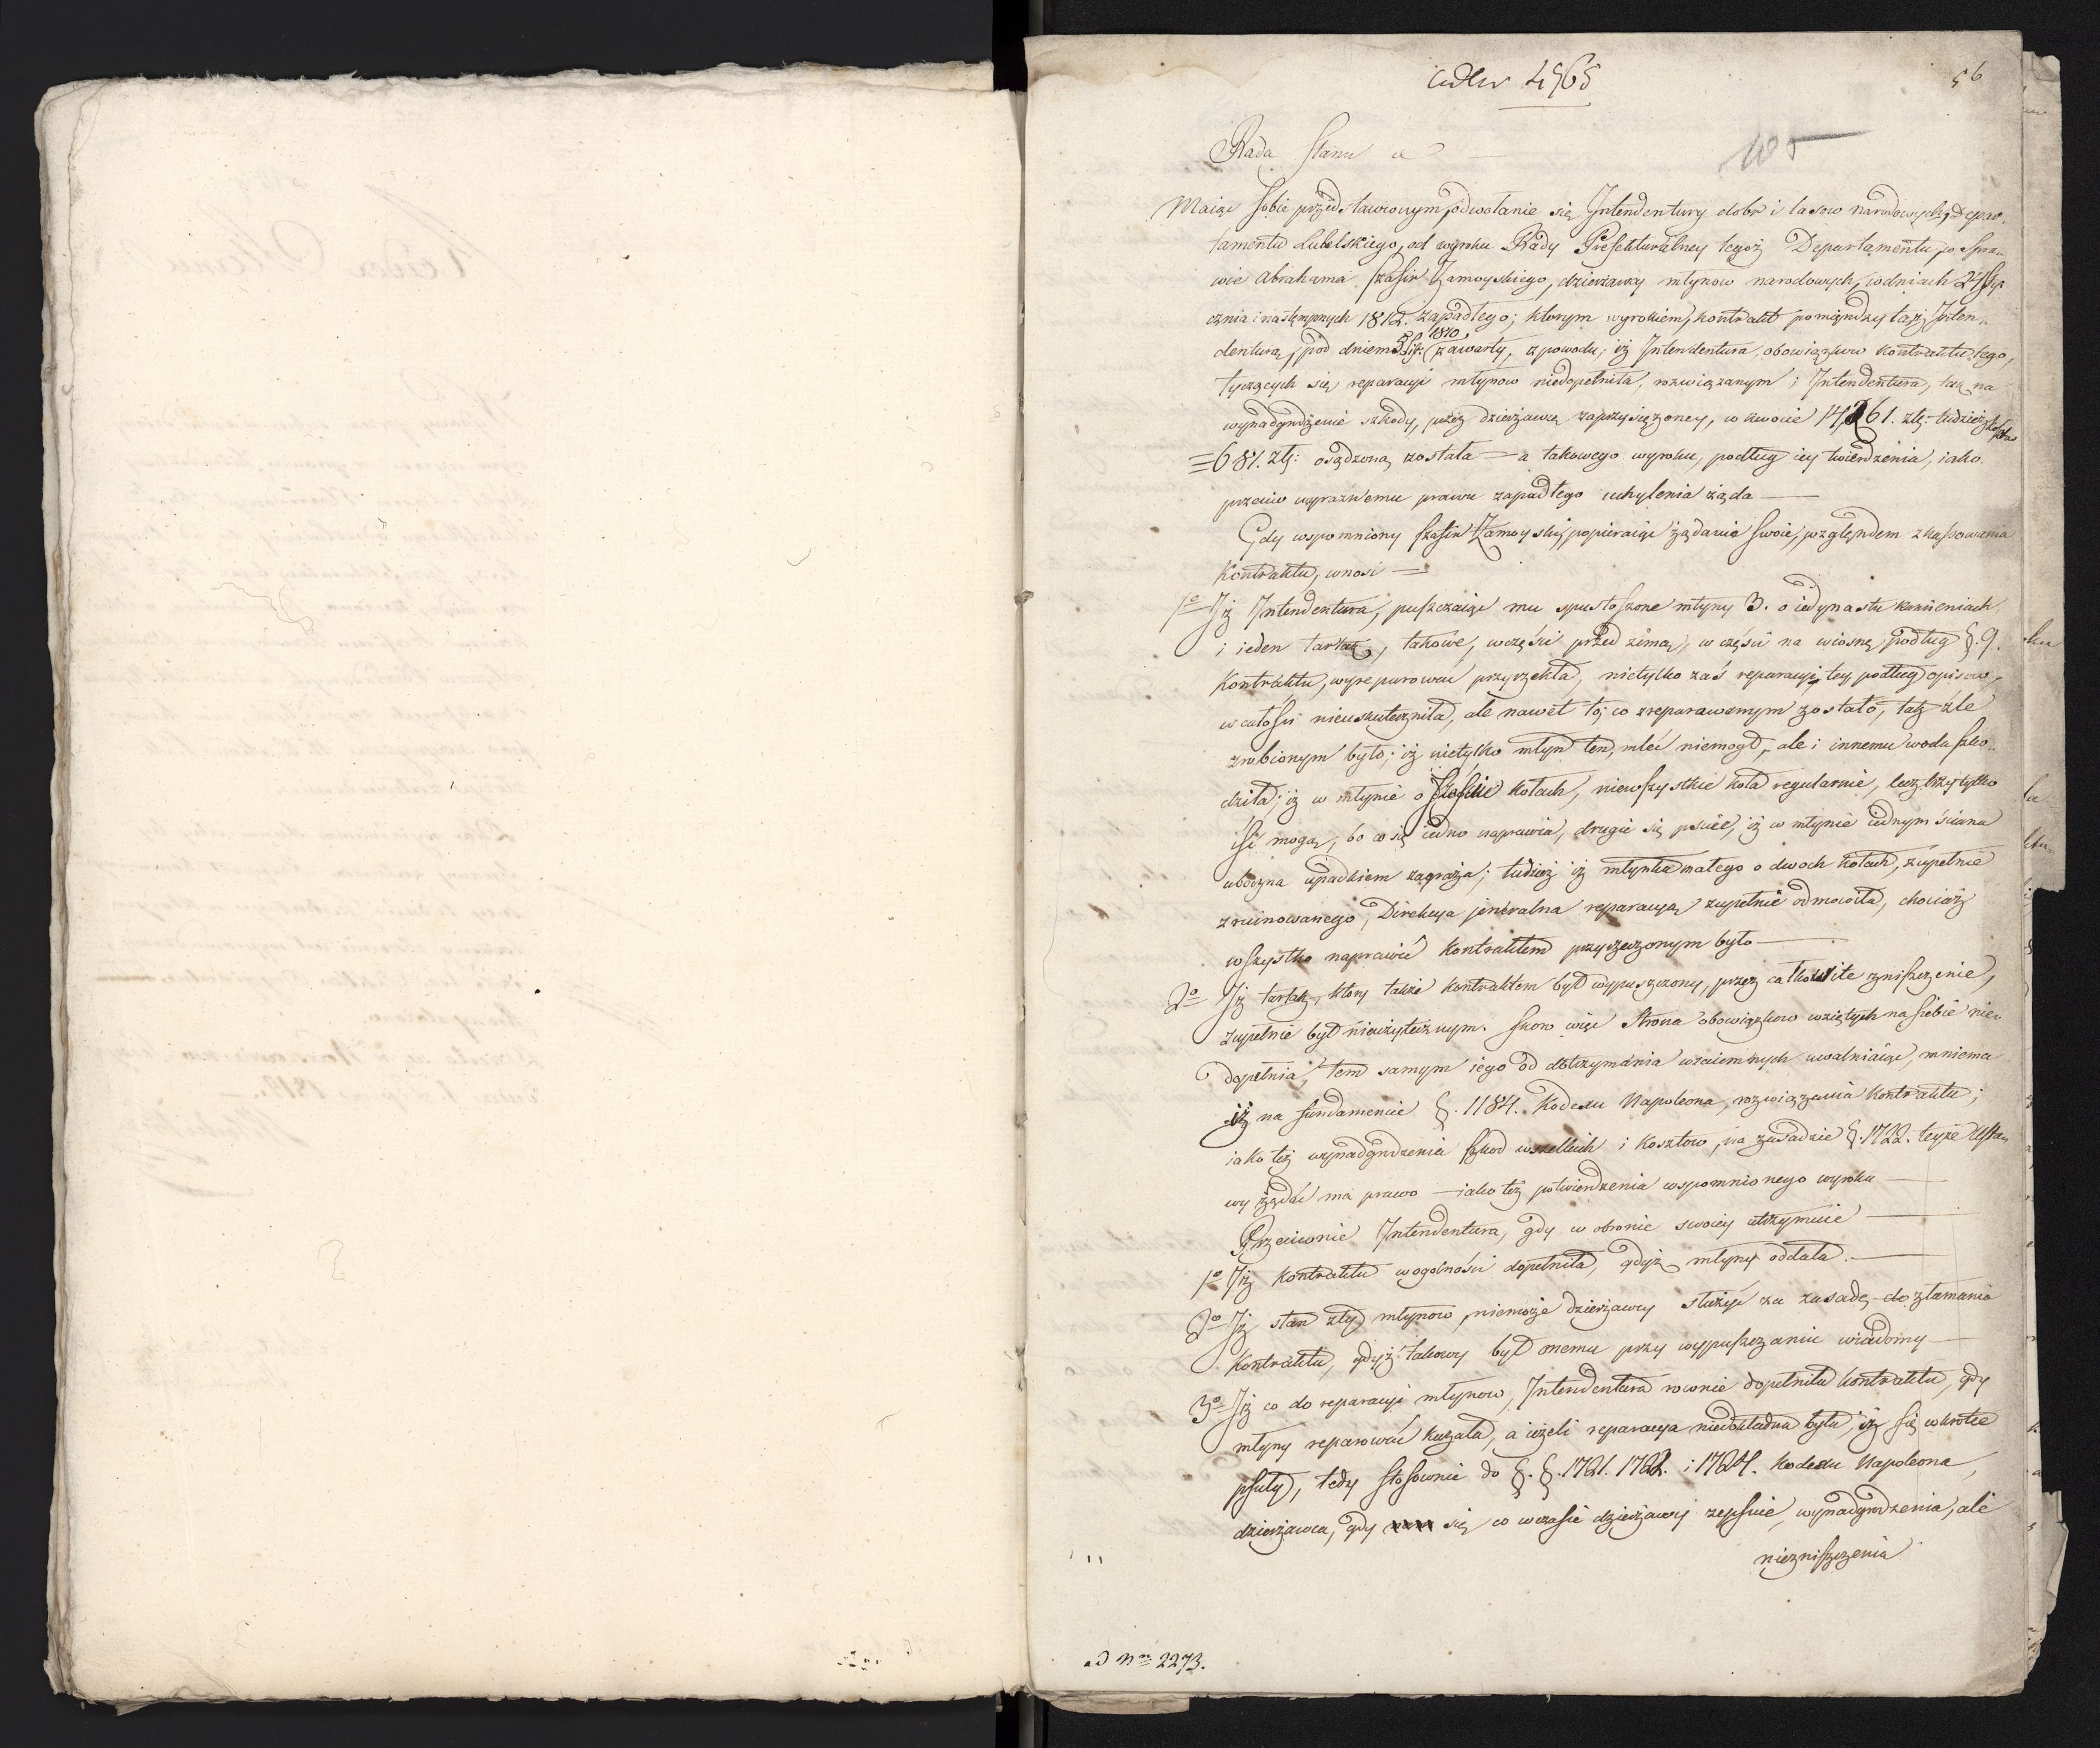 4565
56
Rada Stanu
Maiąc sobie przedstawionym, odwołanie się Intendentury dobr i lasow narodowych, Depar„
tamentu Lubelskiego, od wyroku Rady Prefekturalney tegoż Departamentu, w spra„
wie Abrahama Szafir Zamoyskiego, dzierżawcy młynow narodowych, w dniach 24 Sty
cznia i następnych 1812. zapadłego; ktorym wyrokiem, kontrakt pomiędzy tąż Inten„
denturą, pod dniem 1810 zawarty, z powodu; iż Intendentura, obowiązkow kontraktu tego,
tyczących się reparacyi młynow niedopełniła, rozwiązanym i Intendentura, tak na
wynadgrodzenie szkody, przez dzierżawcę zaprzysiężoney, w kwocie 14,261. złł: tudzież kosztow
681. złł: osądzoną została — a takowego wyroku, podług iey twierdzenia, iako
przeciw wyraźnemu prawu zapadłego uchylenia żąda —
Gdy wspomniony Szafir Zamoyski, popieraiąc żądanie swoie, względem zkassowania
Kontraktu, wnosi —
1o Iż Intendentura, puszczaiąc mu spustoszone młyny 3. o iedynastu kamieniach
i ieden tartak, takowe, w części przed zimą, w części na wiosnę podług §. 9.
Kontraktu, wyreparować przyrzekła, nietylko zaś reparacyi tey podług opisow,
w całości nieuskuteczniła, ale nawet to, co zreparowanym zostało, tak źle
zrobionym było; iż nietylko młyn ten, mleć niemogł, ale i innemu woda szko„
dziła; iż w młynie o sześciu kołach, niewszystkie koła regularnie, lecz trzy tylko
iść mogą, bo co się iedno naprawia, drugie się psuie, iż w młynie iednym ściana
uboczna upadkiem zagraża; tudzież iż młynka małego o dwoch kołach, zupełnie
zruinowanego, Direkcya jeneralna reparacyą zupełnie odmowiła, chociaż
wszystko naprawić kontraktem przyrzeczonym było —
2o Iż tartak, ktory także kontraktem był wypuszczony, przez całkowite zniszczenie,
zupełnie był nieużytecznym. Skoro więc Strona obowiązkow wziętych na siebie nie„
dopełnia, tem samym iego od dotrzymania wzaiemnych uwalniaiąc, mniema
iż na fundamencie §. 1184. Kodexu Napoleona, rozwiązania Kontraktu;
iako też wynadgrodzenia szkod wszelkich i kosztow, na zasadzie §. 1722. teyże Usta„
wy żądać ma prawo — iako też potwierdzenia wspomnionego wyroku —
Przeciwnie Intendentura, gdy w obronie swoiey utrzymuie —
1o Iż kontraktu w ogolności dopełniła, gdyż młyny oddała. —
2o Iż stan zły młynow, niemoże dzierżawcy służyć za zasadę do złamania
Kontraktu, gdyż takowy był onemu przy wypuszczaniu wiadomy —
3o Iż co do reparacyi młynow, Intendentura rownie dopełniła kontraktu, gdy
młyny reparować kazała, a ieżeli reparacya niedokładna była, iż się wkrotce
psuły, tedy stosownie do §. §. 1721. 1722. i 1724. Kodexu Napoleona,
dzierżawca, gdy się co w czasie dzierżawy zepsuie, wynadgrodzenia, ale
niezniszczenia
ad Nrm 2273.